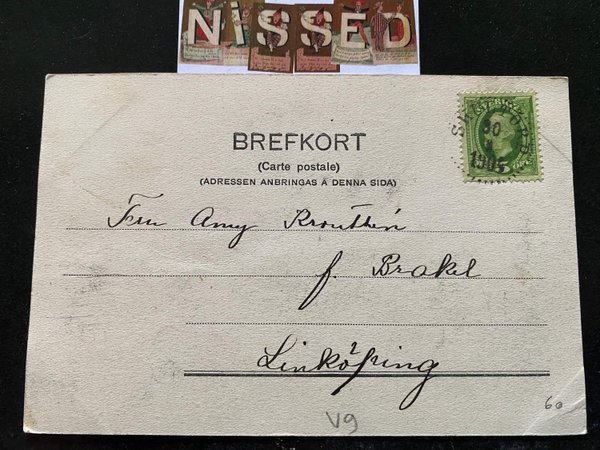 NiSSED
BREFKORT
(Carte postale)
(ADRESSEN ANBRINGAS Å DENNA SIDA)
SVERIGE
30
1905
Fru Amy Krouthén
f. Brakel
Linköping
V9
60